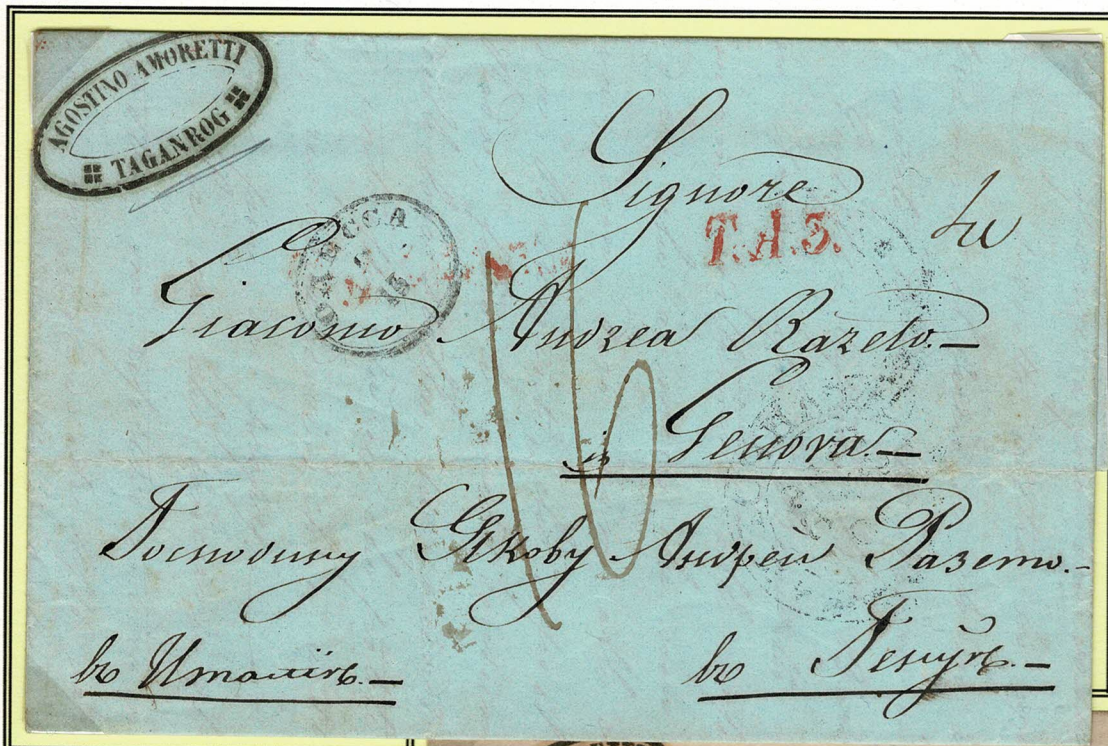 AGOSTINO AMORETTI
TAGANROG
Signore
T.A.3.
ОДЕССА
Giacomo Andrea Razeto.—
16
in Genova.—
Господину Якову Андреи Разето.—
въ Италіи.—
въ Генуѣ.—